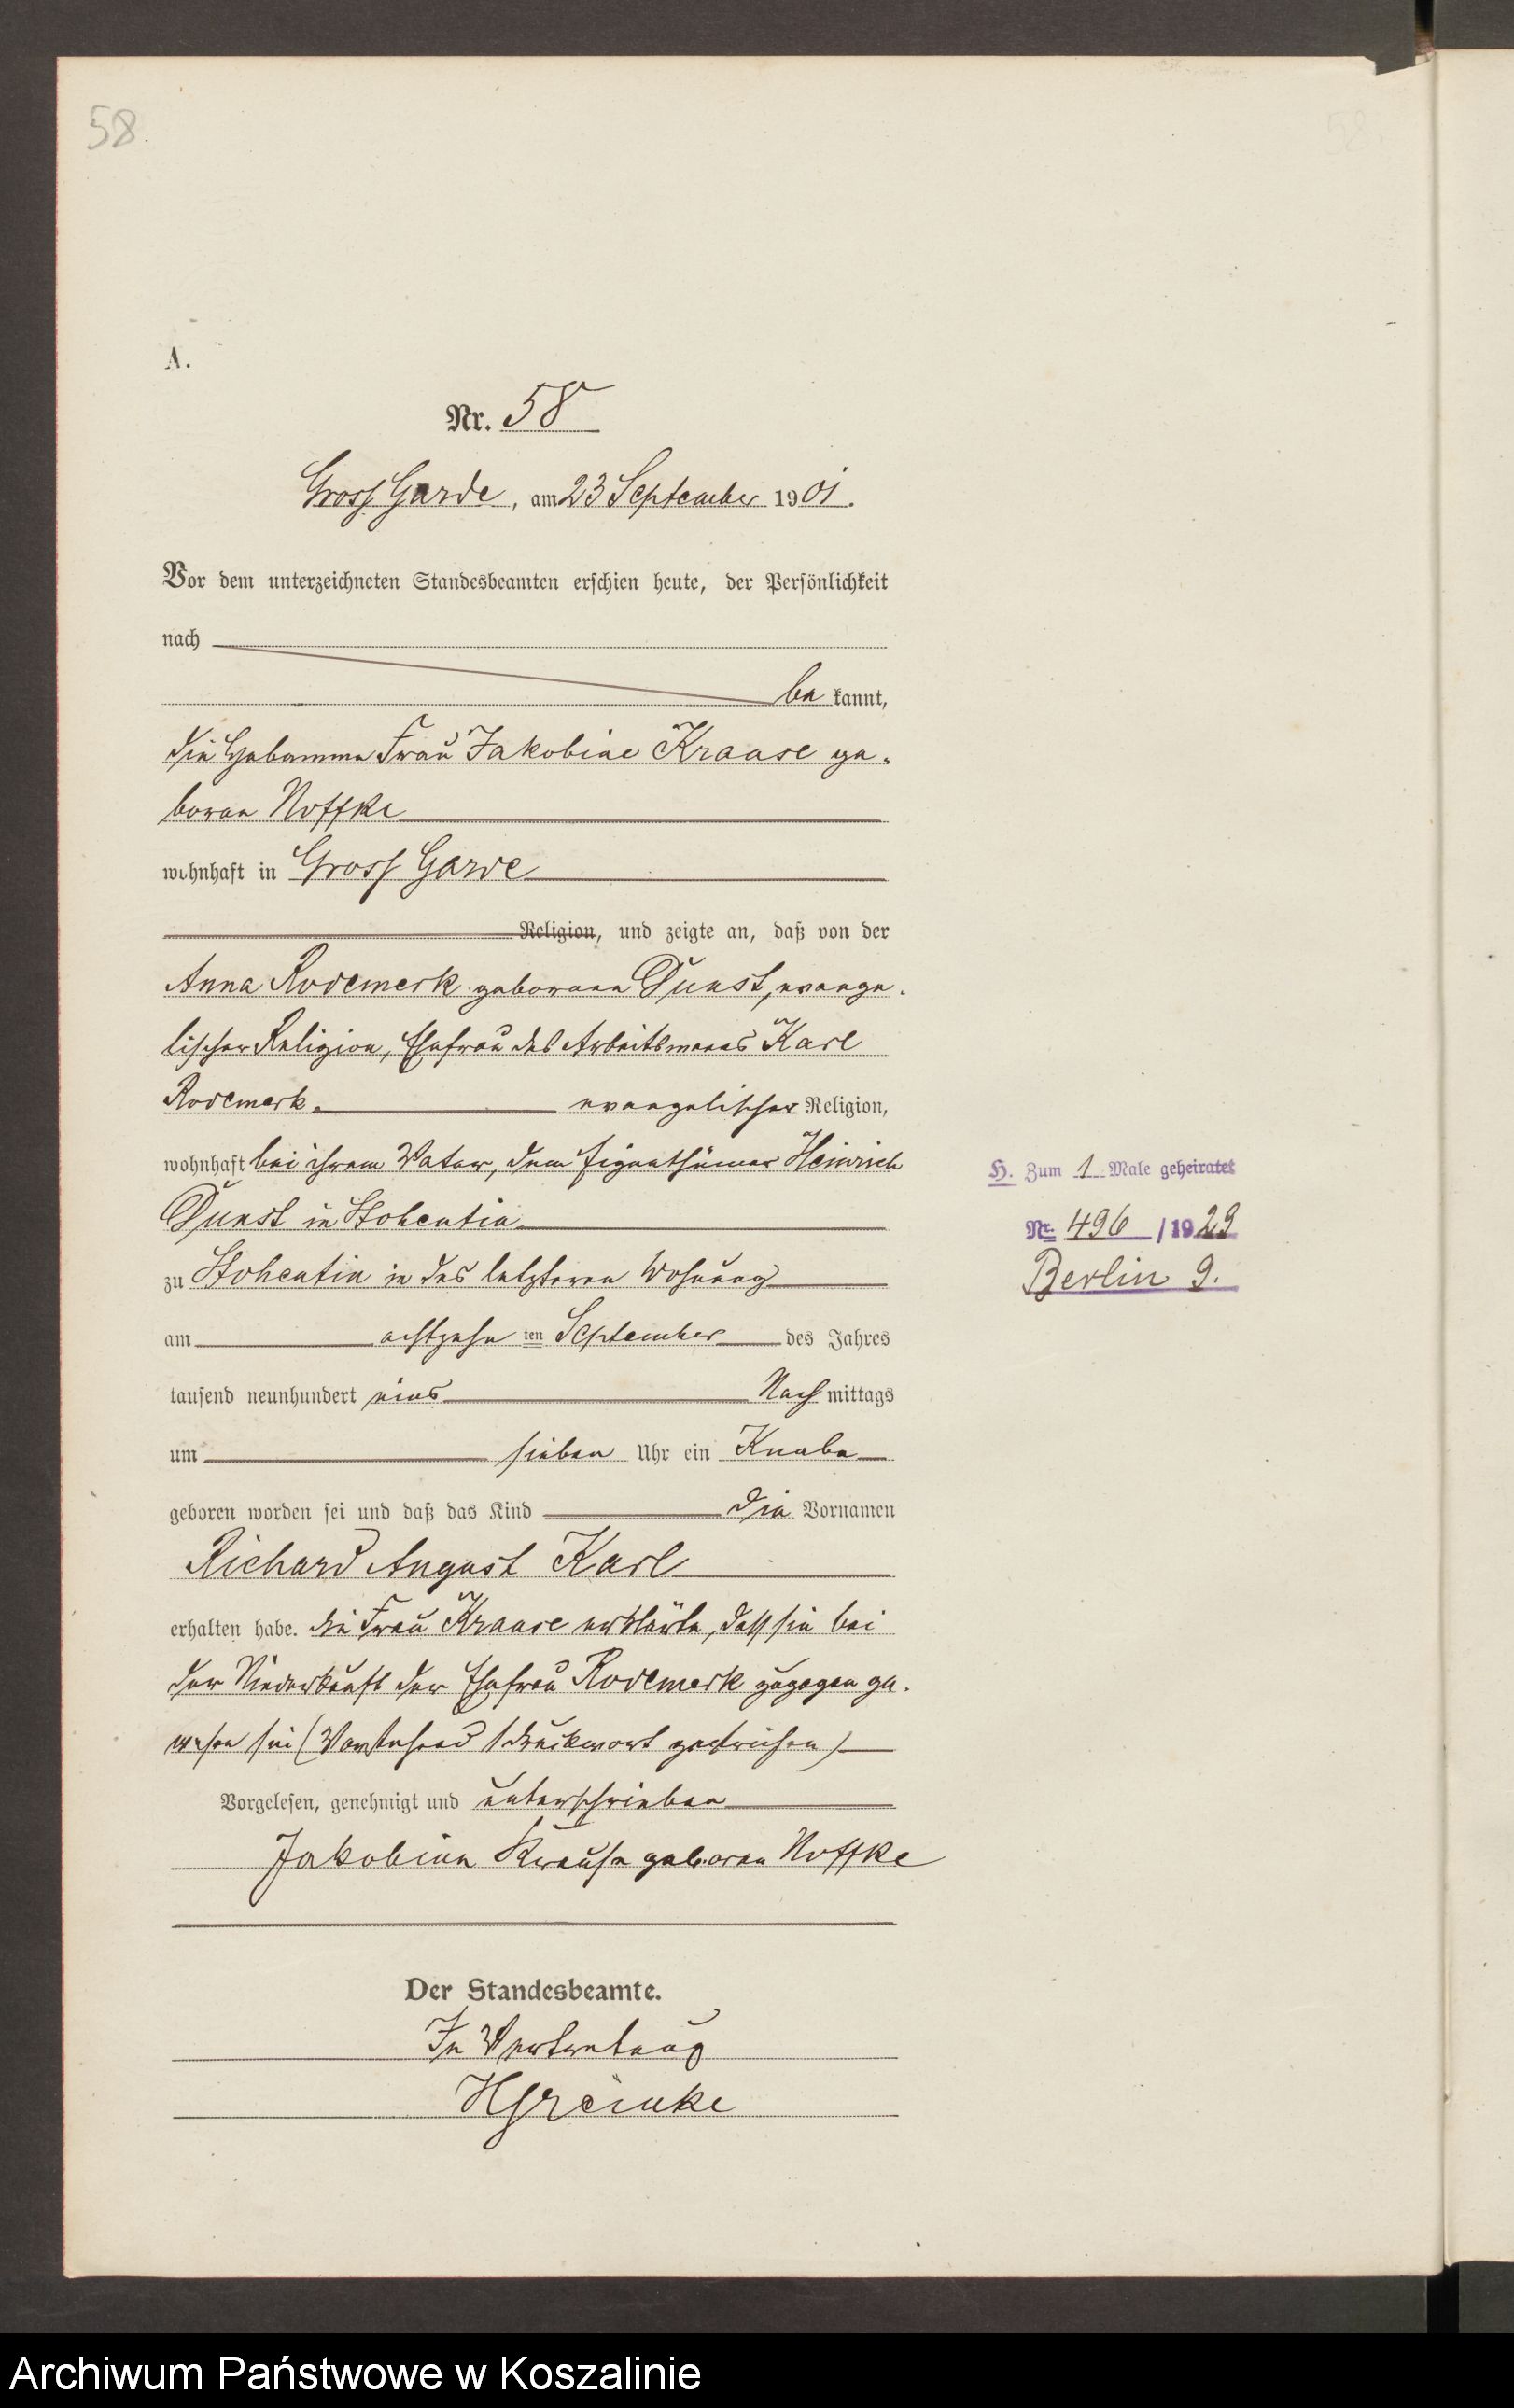 58.
A.
Nr. 58
Gross Garde, am 23 September 1901.
Vor dem unterzeichneten Standesbeamten erschien heute, der Persönlichkeit
nach
be kannt,
die Hebamme Frau Jakobine Krause ge-
boren Noffke
wohnhaft in Gross Garde
Religion, und zeigte an, daß von der
Anna Rodemerk geborene Dunst, evange-
lischer Religion, Ehefrau des Arbeitsmanns Karl
Rodemerk. evangelischer Religion,
wohnhaft bei ihrem Vater, dem Eigenthümer Heinrich
Dunst in Stohentin
zu Stohentin in des letzteren Wohnung
am achtzehn ten September des Jahres
tausend neunhundert eins Nach mittags
um sieben Uhr ein Knabe
geboren worden sei und daß das Kind die Vornamen
Richard August Karl
erhalten habe. Die Frau Krause erklärte, daß sie bei
der Niederkunft der Ehefrau Rodemerk zugegen ge-
wesen sei (Vorstehend 1 Druckwort gestrichen)
Vorgelesen, genehmigt und unterschrieben
Jakobine Krause geboren Noffke
Der Standesbeamte.
In Vertretung
HGreinke
H. Zum 1 Male geheiratet
Nr. 496 / 1929
Berlin 9.
Archiwum Państwowe w Koszalinie